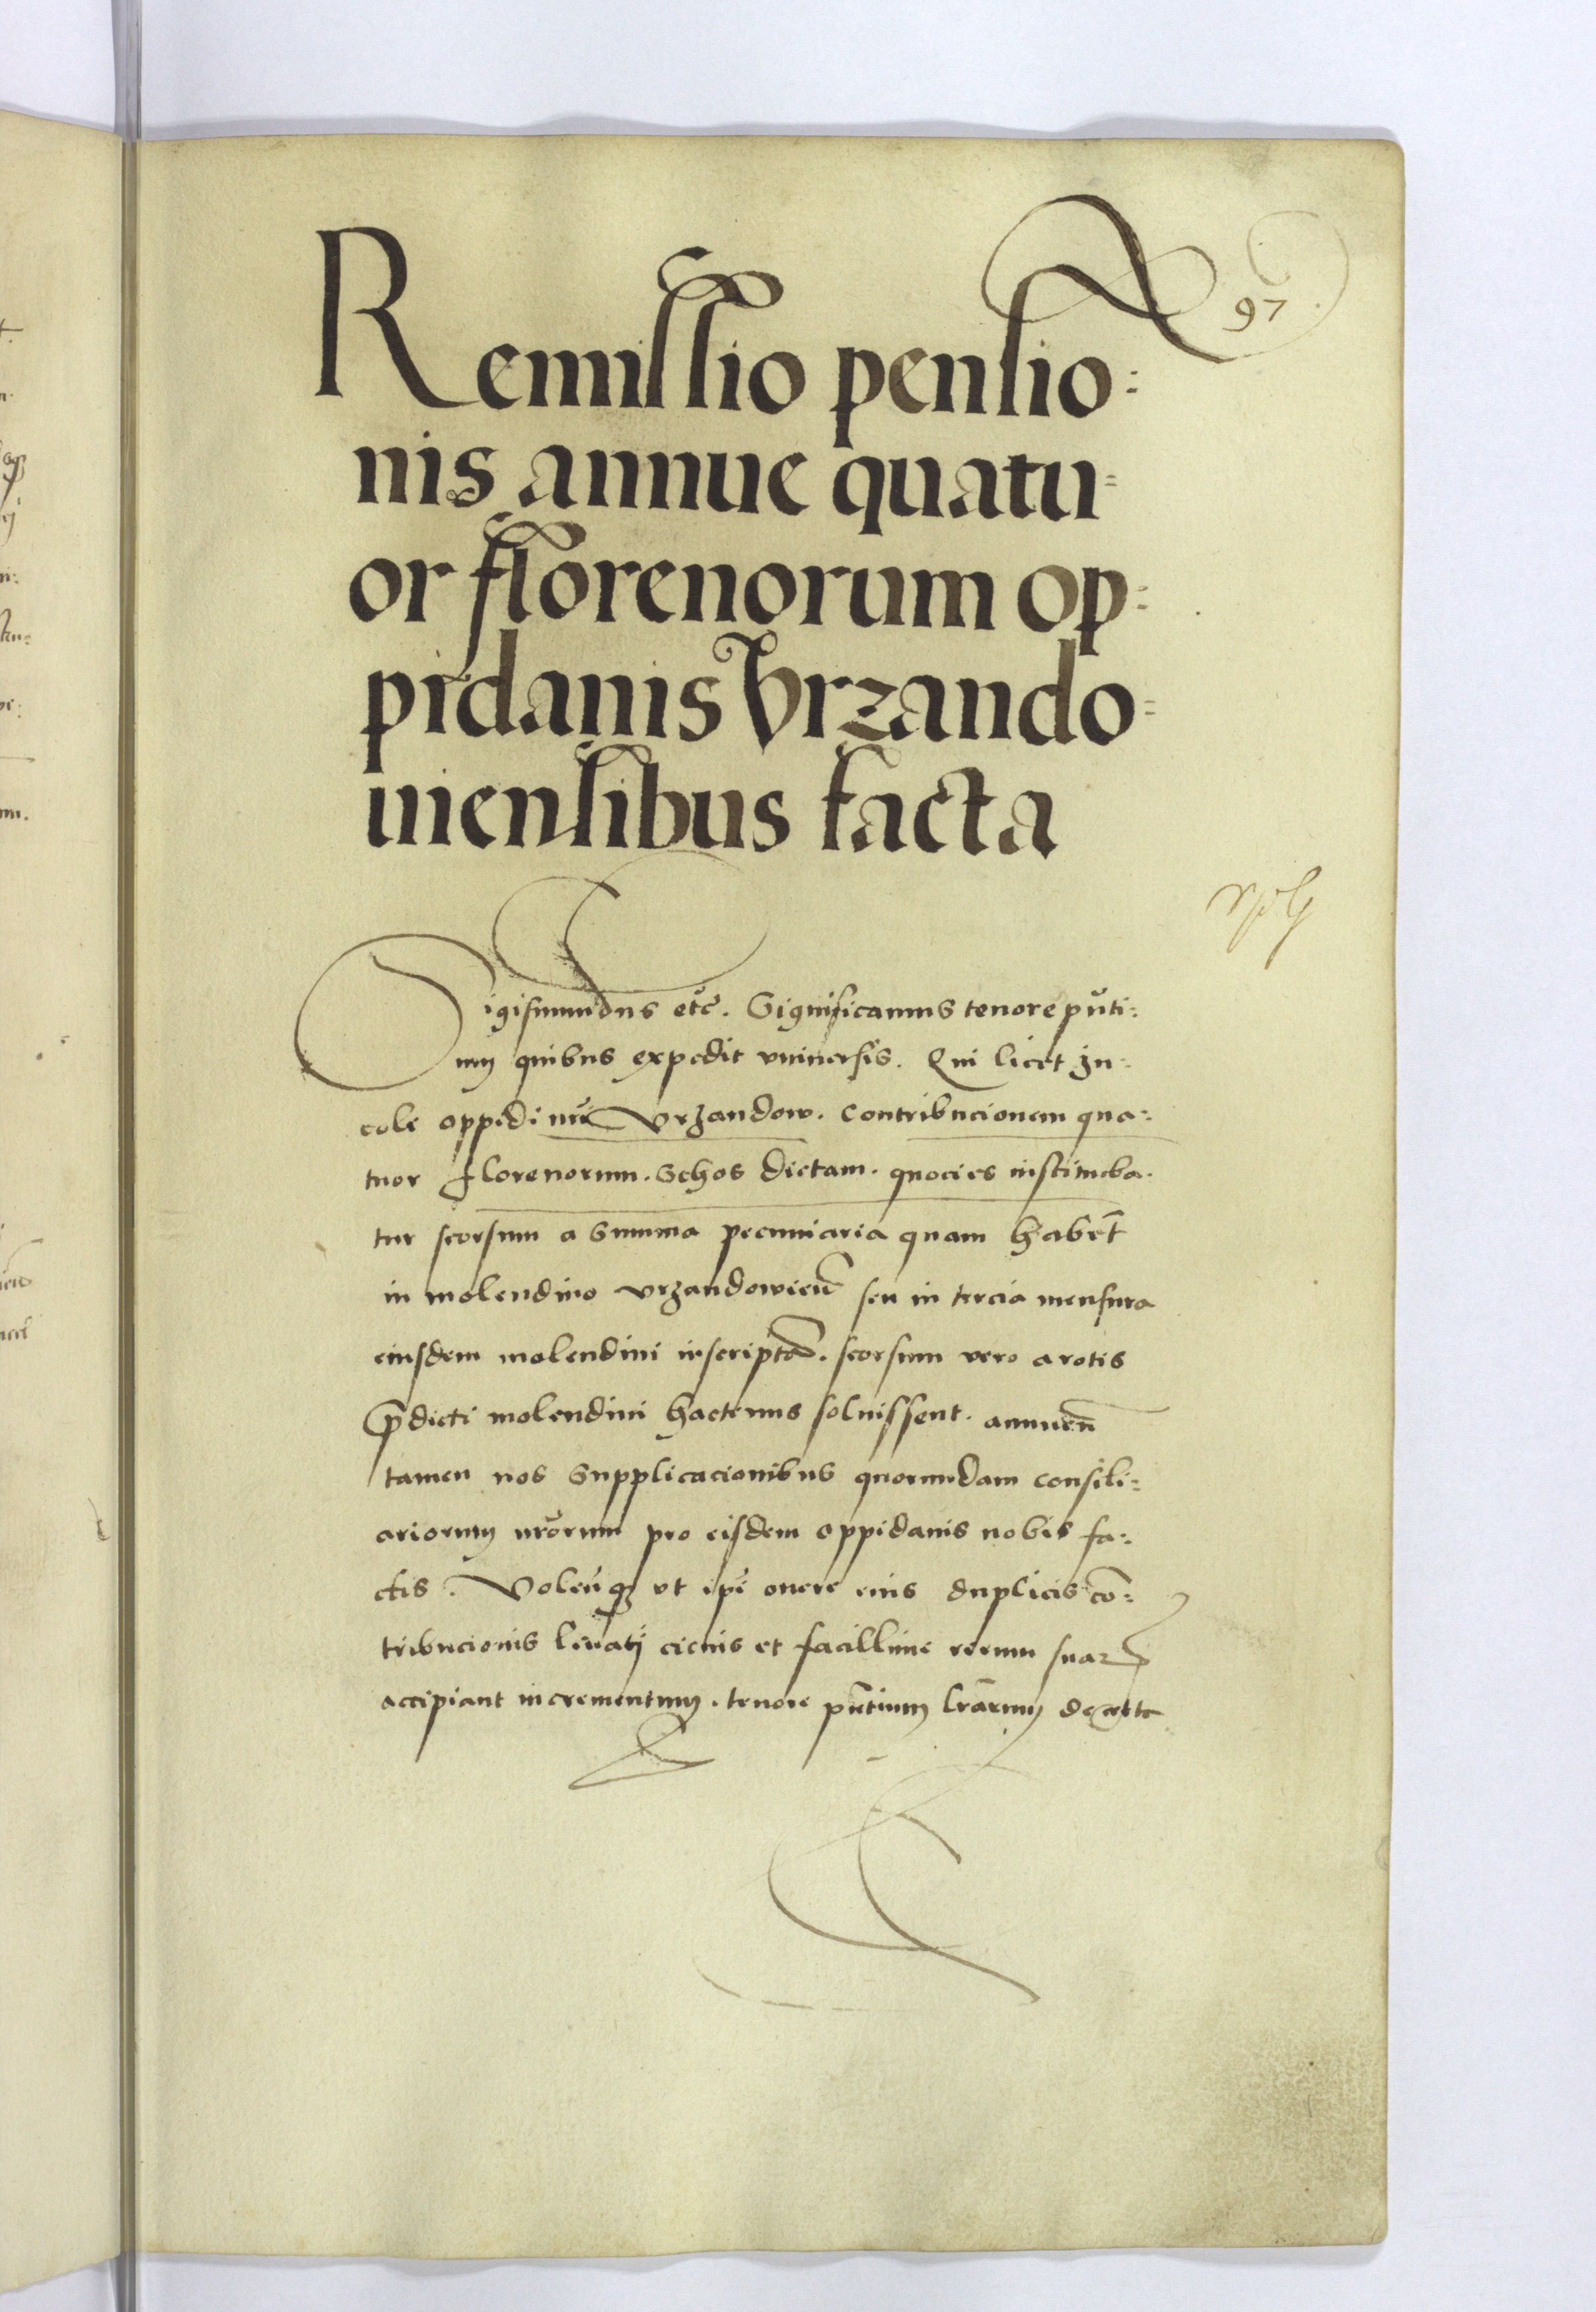 97
Remissio pensio:
nis annue quatu=
or florenorum op=
pidanis Vrzando=
uiensibus facta
Sigismundus etc̄. Significamus tenore pn̄ti:
um quibus expedit vniuersis. Qui licet In:
cole oppidi nr̄i Vrzandow. contribucionem qua:
tuor florenorum. Schos dictam. quocies institueba.
tur seorsum a summa pecuniaria quam habēt
in molendino vrzandowien̄ seu in tercia mensura
eiusdem molendini inscriptā. seorsum vero a rotis
p̄dicti molendini hactenus soluissent. annuen̄
tamen nos supplicacionibus quorundam consili:
ariorum nr̄orum pro eisdem oppidanis nobis fa:
ctis. Volen̄q3 vt ip̄i onere eius duplicis cō:
tribucionis leuatj cicius et facillime rerum suar
accipiant incrementum. tenore pn̄tium lr̄arum de certa